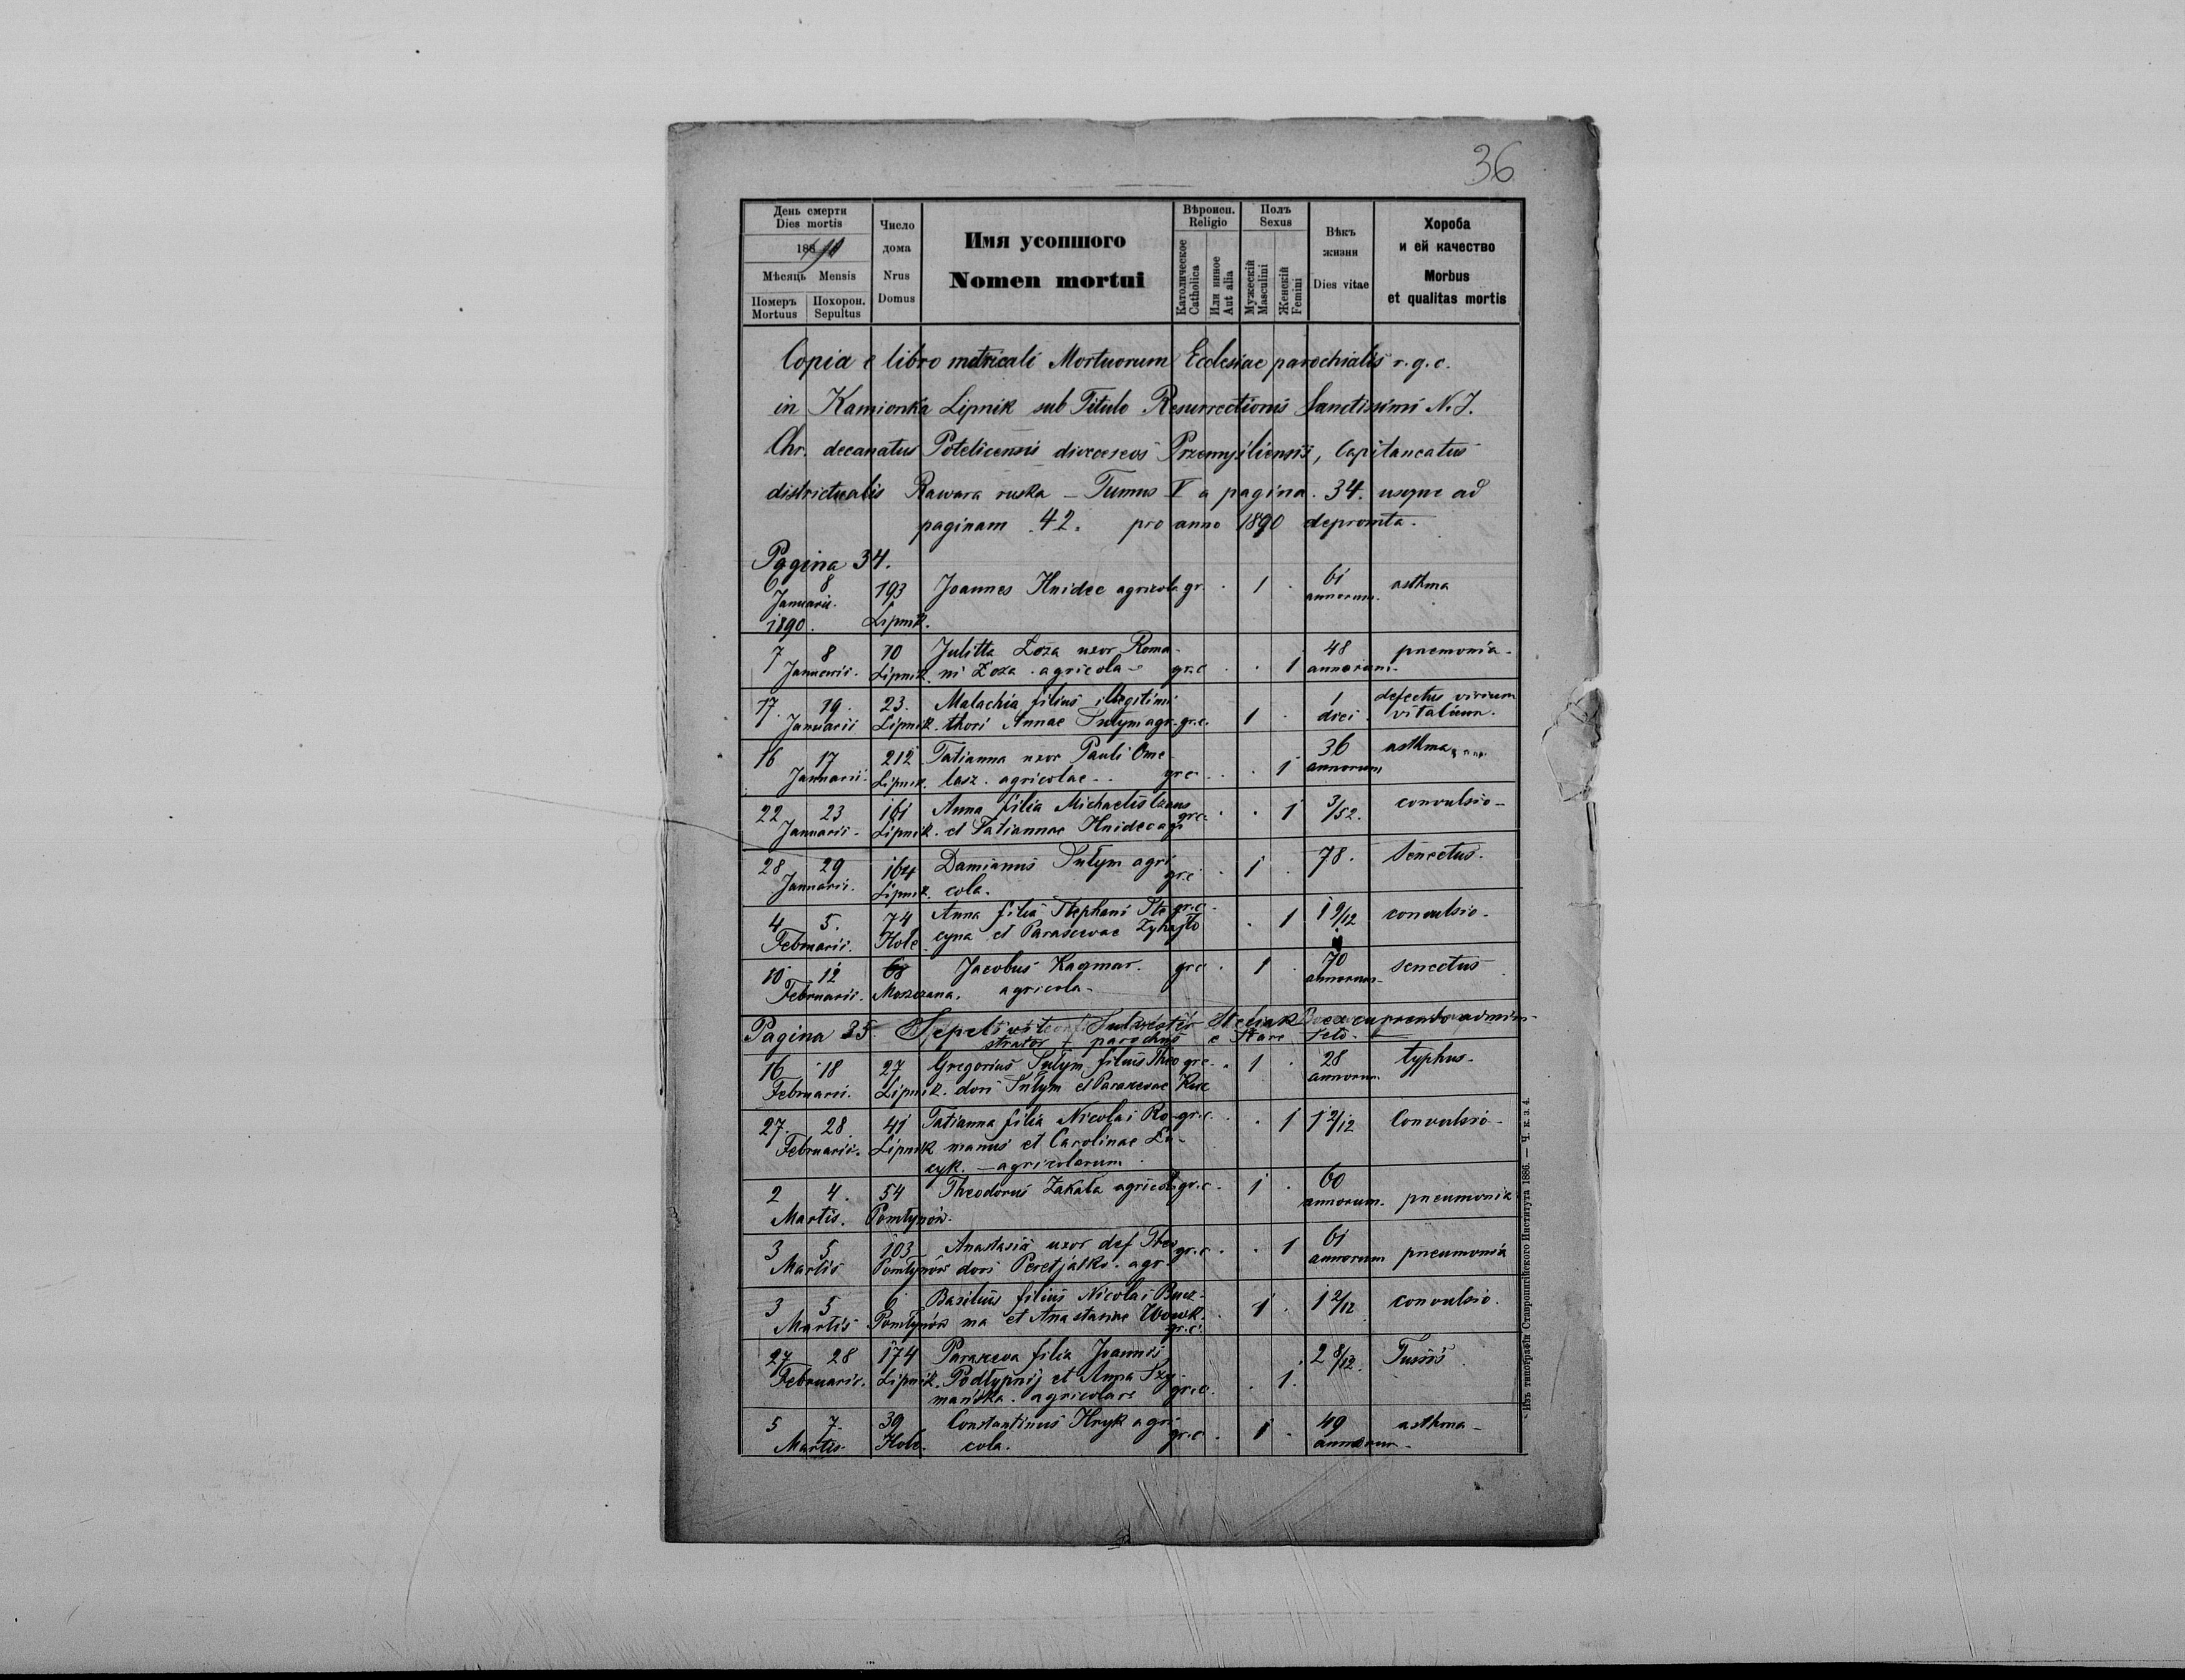 36
День смерти
Dies mortis
1890
Мѣсяць Mensis
Померъ Похорон.
Mortuus Sepultus
Число
дома
Nrus
Domus
Имя усопшого
Nomen mortui
Вѣроисп.
Religio
Католическое
Catholica
Или инное
Aut alia
Полъ
Sexus
Мужескій
Masculini
Женскій
Femini
Вѣкъ
жизни
Dies vitae
Хороба
и ей качество
Morbus
et qualitas mortis
Copia e libro metricali Mortuorum Ecclesiae parochialis r. g. c.
in Kamionka Lipnik sub Titulo Resurrectionis Sanctissimi N. J.
Chr. decanatus Potelicensis dioeceseos Przemysliensis, Capitaneatus
districtualis Rawara ruska — Tumus V a pagina. 34. usque ad
paginam 42. pro anno 1890 depromta.
Pagina 34.
6 8 193 Joannes Hnidec agricola gr. 1 61 asthma
Januarii. Lipnik. annorum.
1890.
7 8 10 Julitta Łoza uxor Roma- 48 pnemonia-
Januarii. Lipnik. ni Łoza. agricola- gr.c 1 annorum-
17. 19. 23. Malachia filius illegitimi 1 defectus virium
Januarii Lipnik. thori Annae Sułym agr. gr.c. 1 diei. vitalium.
16 17 212 Tatianna uxor Pauli Ome- 36 asthma
Januarii. Lipnik. lasz. agricolae- gr.c. 1 annorum
22 23 161 Anna filia Michaelis 1 3/52. convulsio-
Januarii- Lipnik. et Tatiannae Hnidec agr gr.c.
28 29 164 Damianus Sułym agri- 1 78. Senectus.
Januarii. Lipnik. cola. gr.c
4 5. 74 Anna filia Stephani gr.c. 1 1 9/12 convulsio-
Februarii. Hole cyna et Parascevae
10 12 68 Jacobus Kaczmar. gr.c 1 70 senectus
Februarii. agricola- annorum-
Pagina 35. Sepelivit excurrendo admini-
strator + parochus e Stare Seło-
16 18 27 Gregorius Sułym filius Theo gr.c. 1 28 typhus-
Februarii. Lipnik. dori Sułym et Paraxevae annorum.
27. 28. 41 Tatianna filia Nicolai Ro- gr.c. 1 1 2/12 Convulsio-
Februarii. Lipnik manus et Carolinae Łu-
cyk. — agricolarum
2 4. 54 Theodorus Zakała agricola gr.c. 1 60
Martis. Pomłynów. annorum. pneumonia
3 5 103 Anastasia uxor def Theo gr.c. 1 61
Martis Pomłynów dori Peretjatko. agr. annorum pneumonia
3 5 6 Basilius filius Nicolai 1 1 2/12 convulsio.
Martis Pomłynów ma et Anastasiae Wowk. gr.c.
27 28 174 Paraxeva filia Joannis 2 8/12. Tussis
Februarii. Lipnik. Podłypnij et Anna Szy- 1.
mańska. agricolare gr.c.
5 7. 39 Constantinus Hryk agri- 1 49 asthma-
Martis. Hole. cola. gr.c. annorum-
Изъ типографіи Ставропигійского Института 1886. — Ч. к. з. 4.